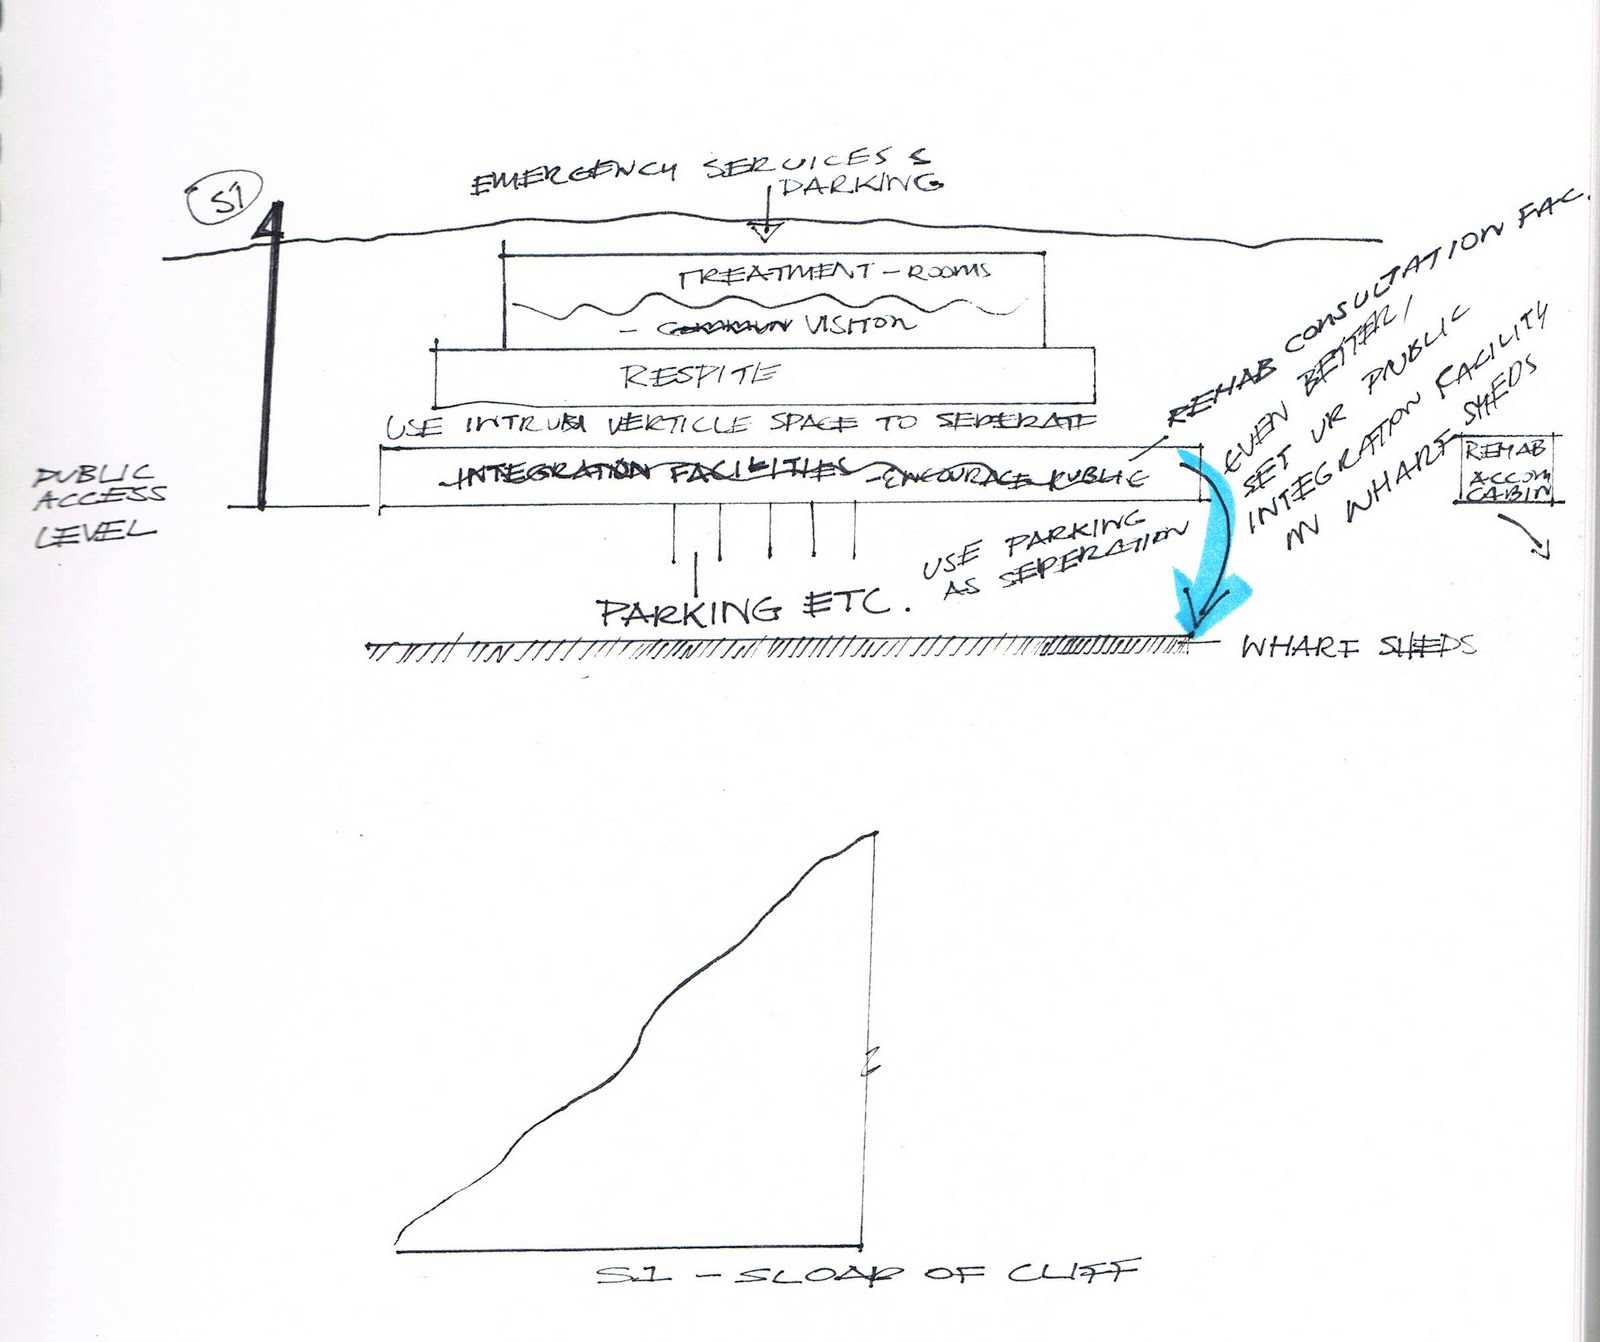 EMERGENCY SERVICES &
PARKING
S1
TREATMENT - ROOMS
- COMMUN VISITOR
RESPITE
USE INTRUM VERTICLE SPACE TO SEPERATE
INTEGRATION FACILITIES - ENCOURAGE PUBLIC
PUBLIC
ACCESS
LEVEL
REHAB CONSULTATION FAC.
EVEN BETTER,
SET UP PUBLIC
INTEGRATION FACILITY
IN WHARF SHEDS
REHAB
ACCOM
CABIN
USE PARKING
AS SEPERATION
PARKING ETC.
WHARF SHEDS
S1 - SLOAP OF CLIFF